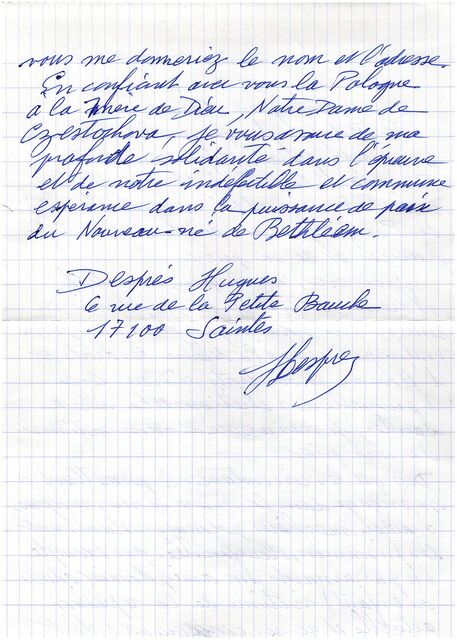 vous me donneriez le nom et l'adresse.
En confiant avec vous la Pologne
à la mère de Dieu, Notre Dame de
Czestochova, je vous assure de ma
profonde solidarité dans l'épreuve
et de notre indéfectible et commune
espérance dans la puissance de paix
du Nouveau-né de Bethléem.
Després Hugues
6 rue de la Petite
17100 Saintes
HDesprez